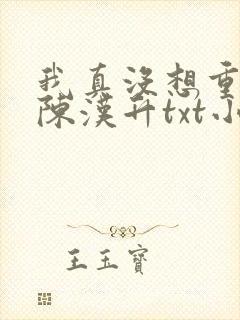 我真没想重
陳漢升txt小
王玉寶